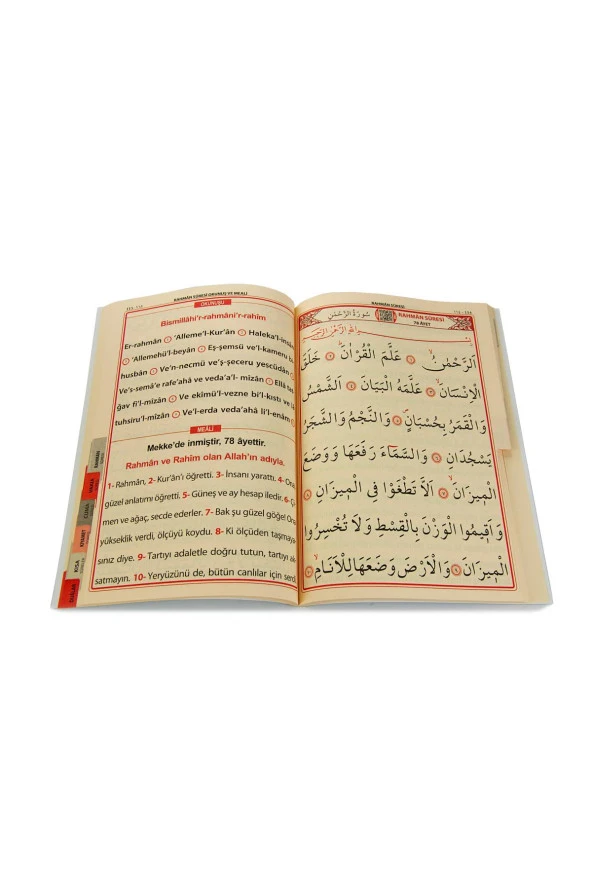 RAHMÂN SÛRESİ OKUNUŞ VE MEÂLİ
OKUNUŞU
Bismillâhi'r-rahmâni'r-rahîm
Er-rahmân 'Alleme'l-Kur'ân Haleka'l-insân
'Allemehü'l-beyân Eş-şemsü ve'l-kameru bi
husbân Ve'n-necmü ve'ş-şeceru yescüdân
Ve's-semâ'e rafe'ahâ ve veda'a'l- mîzân Ellâ
ğav fi'l-mîzân Ve ekîmü'l-vezne bi'l-kıstı ve
tuhsiru'l-mîzân Ve'l-erda veda'ahâ li'l-enâm
MEÂLİ
Mekke'de inmiştir, 78 âyettir.
Rahmân ve Rahîm olan Allah'ın adıyla.
1- Rahmân, 2- Kur'ân'ı öğretti. 3- İnsanı yarattı. 4- Ona
güzel anlatımı öğretti. 5- Güneş ve ay hesap iledir. 6-
men ve ağaç, secde ederler. 7- Bak şu güzel göğe! Ona
yükseklik verdi, ölçüyü koydu. 8- Ki ölçüden taşmaya
sınız diye. 9- Tartıyı adaletle doğru tutun, tartıyı ak
satmayın. 10- Yeryüzünü de, bütün canlılar için serdi
RAHMÂN SÛRESİ
سُورَةُ الرَّحْمٰنِ RAHMÂN SÛRESİ
78 ÂYET
بِسْمِ اللّٰهِ الرَّحْمٰنِ الرَّحِيمِ
اَلرَّحْمٰنُۙ ١ عَلَّمَ الْقُرْاٰنَۜ ٢ خَلَقَ
الْاِنْسَانَۙ ٣ عَلَّمَهُ الْبَيَانَ ٤ اَلشَّمْسُ
وَالْقَمَرُ بِحُسْبَانٍۖ ٥ وَالنَّجْمُ وَالشَّجَرُ
يَسْجُدَانِ ٦ وَالسَّمَٓاءَ رَفَعَهَا وَوَضَعَ
الْم۪يزَانَۙ ٧ اَلَّا تَطْغَوْا فِي الْم۪يزَانِ ٨
وَاَق۪يمُوا الْوَزْنَ بِالْقِسْطِ وَلَا تُخْسِرُوا
الْم۪يزَانَ ٩ وَالْاَرْضَ وَضَعَهَا لِلْاَنَامِۙ ١٠